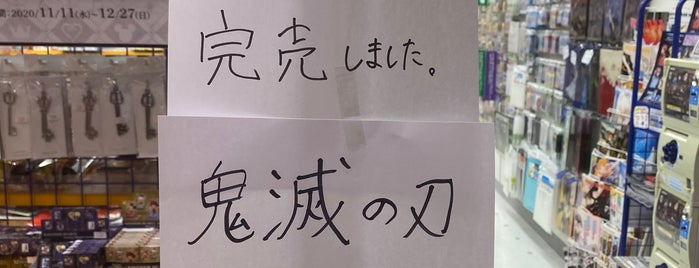 間：2020/11/11(水)～12/27(日)
完売しました。
鬼滅の刃